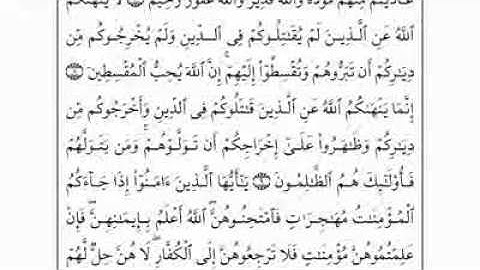 عَادَيْتُم مِّنْهُم مَّوَدَّةً وَٱللَّهُ قَدِيرٌ وَٱللَّهُ غَفُورٌ رَّحِيمٌ ۝٧ لَّا يَنْهَىٰكُمُ
ٱللَّهُ عَنِ ٱلَّذِينَ لَمْ يُقَـٰتِلُوكُمْ فِى ٱلدِّينِ وَلَمْ يُخْرِجُوكُم مِّن
دِيَـٰرِكُمْ أَن تَبَرُّوهُمْ وَتُقْسِطُوٓا۟ إِلَيْهِمْ ۚ إِنَّ ٱللَّهَ يُحِبُّ ٱلْمُقْسِطِينَ ۝٨
إِنَّمَا يَنْهَىٰكُمُ ٱللَّهُ عَنِ ٱلَّذِينَ قَـٰتَلُوكُمْ فِى ٱلدِّينِ وَأَخْرَجُوكُم مِّن
دِيَـٰرِكُمْ وَظَـٰهَرُوا۟ عَلَىٰٓ إِخْرَاجِكُمْ أَن تَوَلَّوْهُمْ ۚ وَمَن يَتَوَلَّهُمْ
فَأُو۟لَـٰٓئِكَ هُمُ ٱلظَّـٰلِمُونَ ۝٩ يَـٰٓأَيُّهَا ٱلَّذِينَ ءَامَنُوٓا۟ إِذَا جَآءَكُمُ
ٱلْمُؤْمِنَـٰتُ مُهَـٰجِرَٰتٍ فَٱمْتَحِنُوهُنَّ ۖ ٱللَّهُ أَعْلَمُ بِإِيمَـٰنِهِنَّ ۖ فَإِنْ
عَلِمْتُمُوهُنَّ مُؤْمِنَـٰتٍ فَلَا تَرْجِعُوهُنَّ إِلَى ٱلْكُفَّارِ ۖ لَا هُنَّ حِلٌّ لَّهُمْ